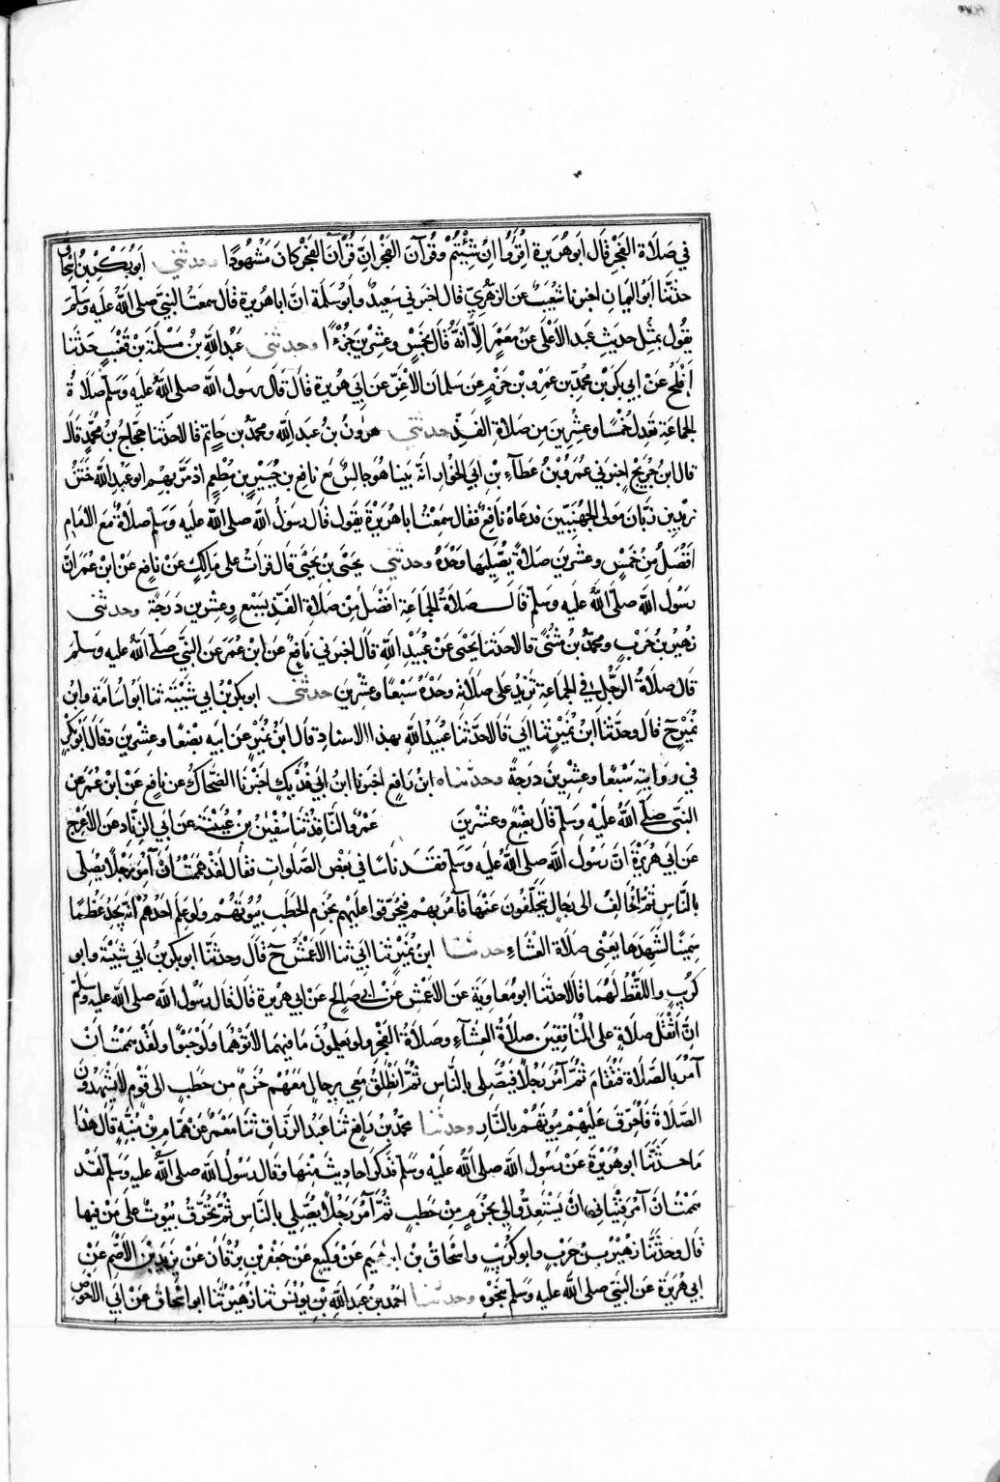 في صلاة الفجر قال ابو هريرة اقرؤا ان شئتم وقرآن الفجر ان قرآن الفجر كان مشهودا وحدثني ابو بكر بن اسحاق
حدثنا ابو اليمان اخبرنا شعيب عن الزهري قال اخبرني سعيد وابو سلمة ان ابا هريرة قال سمعت النبي صلى الله عليه وسلم
يقول بمثل حديث عبد الاعلى عن معمر الا انه قال بخمس وعشرين جزءا وحدثني عبد الله بن مسلمة بن قعنب حدثنا
افلح عن ابي بكر بن محمد بن عمرو بن حزم عن سلمان الاغر عن ابي هريرة قال قال رسول الله صلى الله عليه وسلم صلاة
الجماعة تعدل خمسا وعشرين من صلاة الفذ حدثني هرون بن عبد الله ومحمد بن حاتم قالا حدثنا حجاج بن محمد قال
قال ابن جريج اخبرني عمرو بن عطاء بن ابي الخوار انه بينا هو جالس مع نافع بن جبير بن مطعم اذ مر بهم ابو عبد الله ختن
زيد بن زبان مولى الجهنيين فدعاه نافع فقال سمعت ابا هريرة يقول قال رسول الله صلى الله عليه وسلم صلاة مع الامام
افضل من خمس وعشرين صلاة يصليها وحده وحدثني يحيى بن يحيى قال قرات على مالك عن نافع عن ابن عمر ان
رسول الله صلى الله عليه وسلم قال صلاة الجماعة افضل من صلاة الفذ بسبع وعشرين درجة وحدثني
زهير بن حرب ومحمد بن مثنى قالا حدثنا يحيى عن عبيد الله قال اخبرني نافع عن ابن عمر عن النبي صلى الله عليه وسلم
قال صلاة الرجل في الجماعة تزيد على صلاته وحده سبعا وعشرين حدثني ابو بكر بن ابي شيبة ثنا ابو اسامة وابن
نمير ح قال وحدثنا ابن نمير ثنا ابي قالا حدثنا عبيد الله بهذا الاسناد قال ابن نمير عن ابيه بضعا وعشرين وقال ابو بكر
في روايته سبعا وعشرين درجة وحدثناه ابن رافع اخبرنا ابن ابي فديك اخبرنا الضحاك عن نافع عن ابن عمر عن
النبي صلى الله عليه وسلم قال بضع وعشرين عمرو الناقد ثنا سفين بن عيينة عن ابي الزناد عن الاعرج
عن ابي هريرة ان رسول الله صلى الله عليه وسلم فقد ناسا في بعض الصلوات فقال لقد هممت ان آمر رجلا يصلي
بالناس ثم اخالف الى رجال يتخلفون عنها فآمر بهم فيحرقوا عليهم بحزم الحطب بيوتهم ولو علم احدهم انه يجد عظما
سمينا لشهدها يعني صلاة العشاء حدثنا ابن نمير ثنا ابي ثنا الاعمش ح قال وحدثنا ابو بكر بن ابي شيبة وابو
كريب واللفظ لهما قالا حدثنا ابو معاوية عن الاعمش عن ابي صالح عن ابي هريرة قال قال رسول الله صلى الله عليه وسلم
ان اثقل صلاة على المنافقين صلاة العشاء وصلاة الفجر ولو يعلمون ما فيهما لاتوهما ولو حبوا ولقد هممت ان
آمر بالصلاة فتقام ثم آمر رجلا فيصلي بالناس ثم انطلق معي برجال معهم حزم من حطب الى قوم لا يشهدون
الصلاة فاحرق عليهم بيوتهم بالنار وحدثنا محمد بن رافع ثنا عبد الرزاق ثنا معمر عن همام بن منبه قال هذا
ما حدثنا ابو هريرة عن رسول الله صلى الله عليه وسلم فذكر احاديث منها وقال رسول الله صلى الله عليه وسلم لقد
هممت ان آمر فتياني ان يستعدوا لي بحزم من حطب ثم آمر رجلا يصلي بالناس ثم تحرق بيوت على من فيها
قال وحدثنا زهير بن حرب وابو كريب واسحاق بن ابراهيم عن وكيع عن جعفر بن برقان عن يزيد بن الاصم عن
ابي هريرة عن النبي صلى الله عليه وسلم بنحوه وحدثنا احمد بن عبد الله بن يونس ثنا زهير ثنا ابو اسحاق عن ابي الاحوص